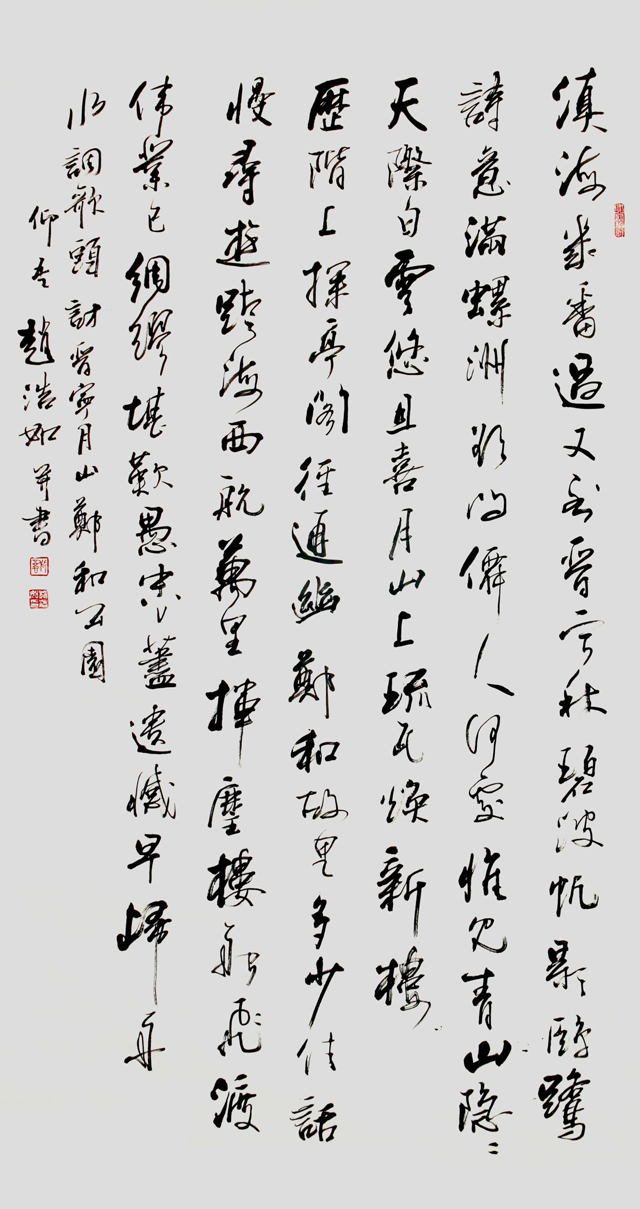 滇海幾番過又到晋宁秋碧波帆影鷗鷺
詩意滿螺洲欲问僊人何處惟见青山隐〻
天際白雲悠且喜月山上琉瓦焕新樓
歷階上探亭阁徑通幽鄭和故里多少佳話
慢尋遊跨海西航萬里揮麈樓船飛渡
伟業已綢繆堪歎愚忠蓋遗憾早歸舟
水調歌頭 訪晋寧月山鄭和公園
仰吾 趙浩如并書